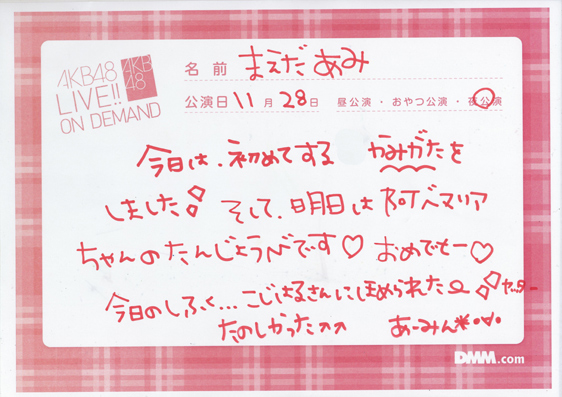 AKB48
LIVE!!
ON DEMAND
AKB
48
名前 まえだ あみ
公演日 11月28日 昼公演・おやつ公演・夜公演
今日は、初めてする かみがたを
しました! そして、明日は
マリア
ちゃんのたんじょうびです♡ おめでとー♡
今日のしふく...こじはるさんにほめられた
ヤッター
たのしかった あーみん
DMM.com